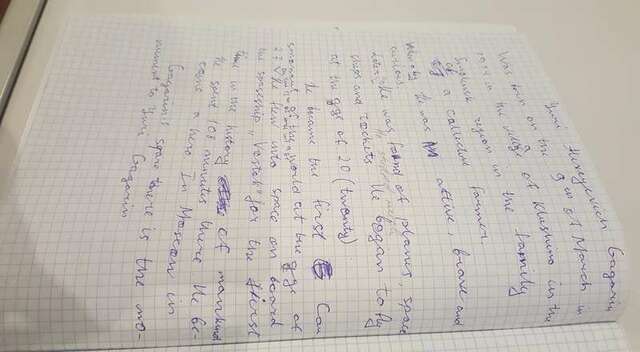 Yuri Alexeyevich Gagarin
Was born on the 9 of March in
1934 in the village of Klushino in the
Smolensk region in the family
of a collective farmer
he was active, brave and
curious
he was fond of planes, space
ships and rockets He began to fly
at the age of 20 (twenty)
He became the first
in the world at the age of
27 He flew into space on board
the spaceship "Vostok" for the
time in the history of mankind
He spent 108 minutes there He be-
came a hero In Moscow in
Gagarin's space there is the mo-
nument to Yuri Gagarin